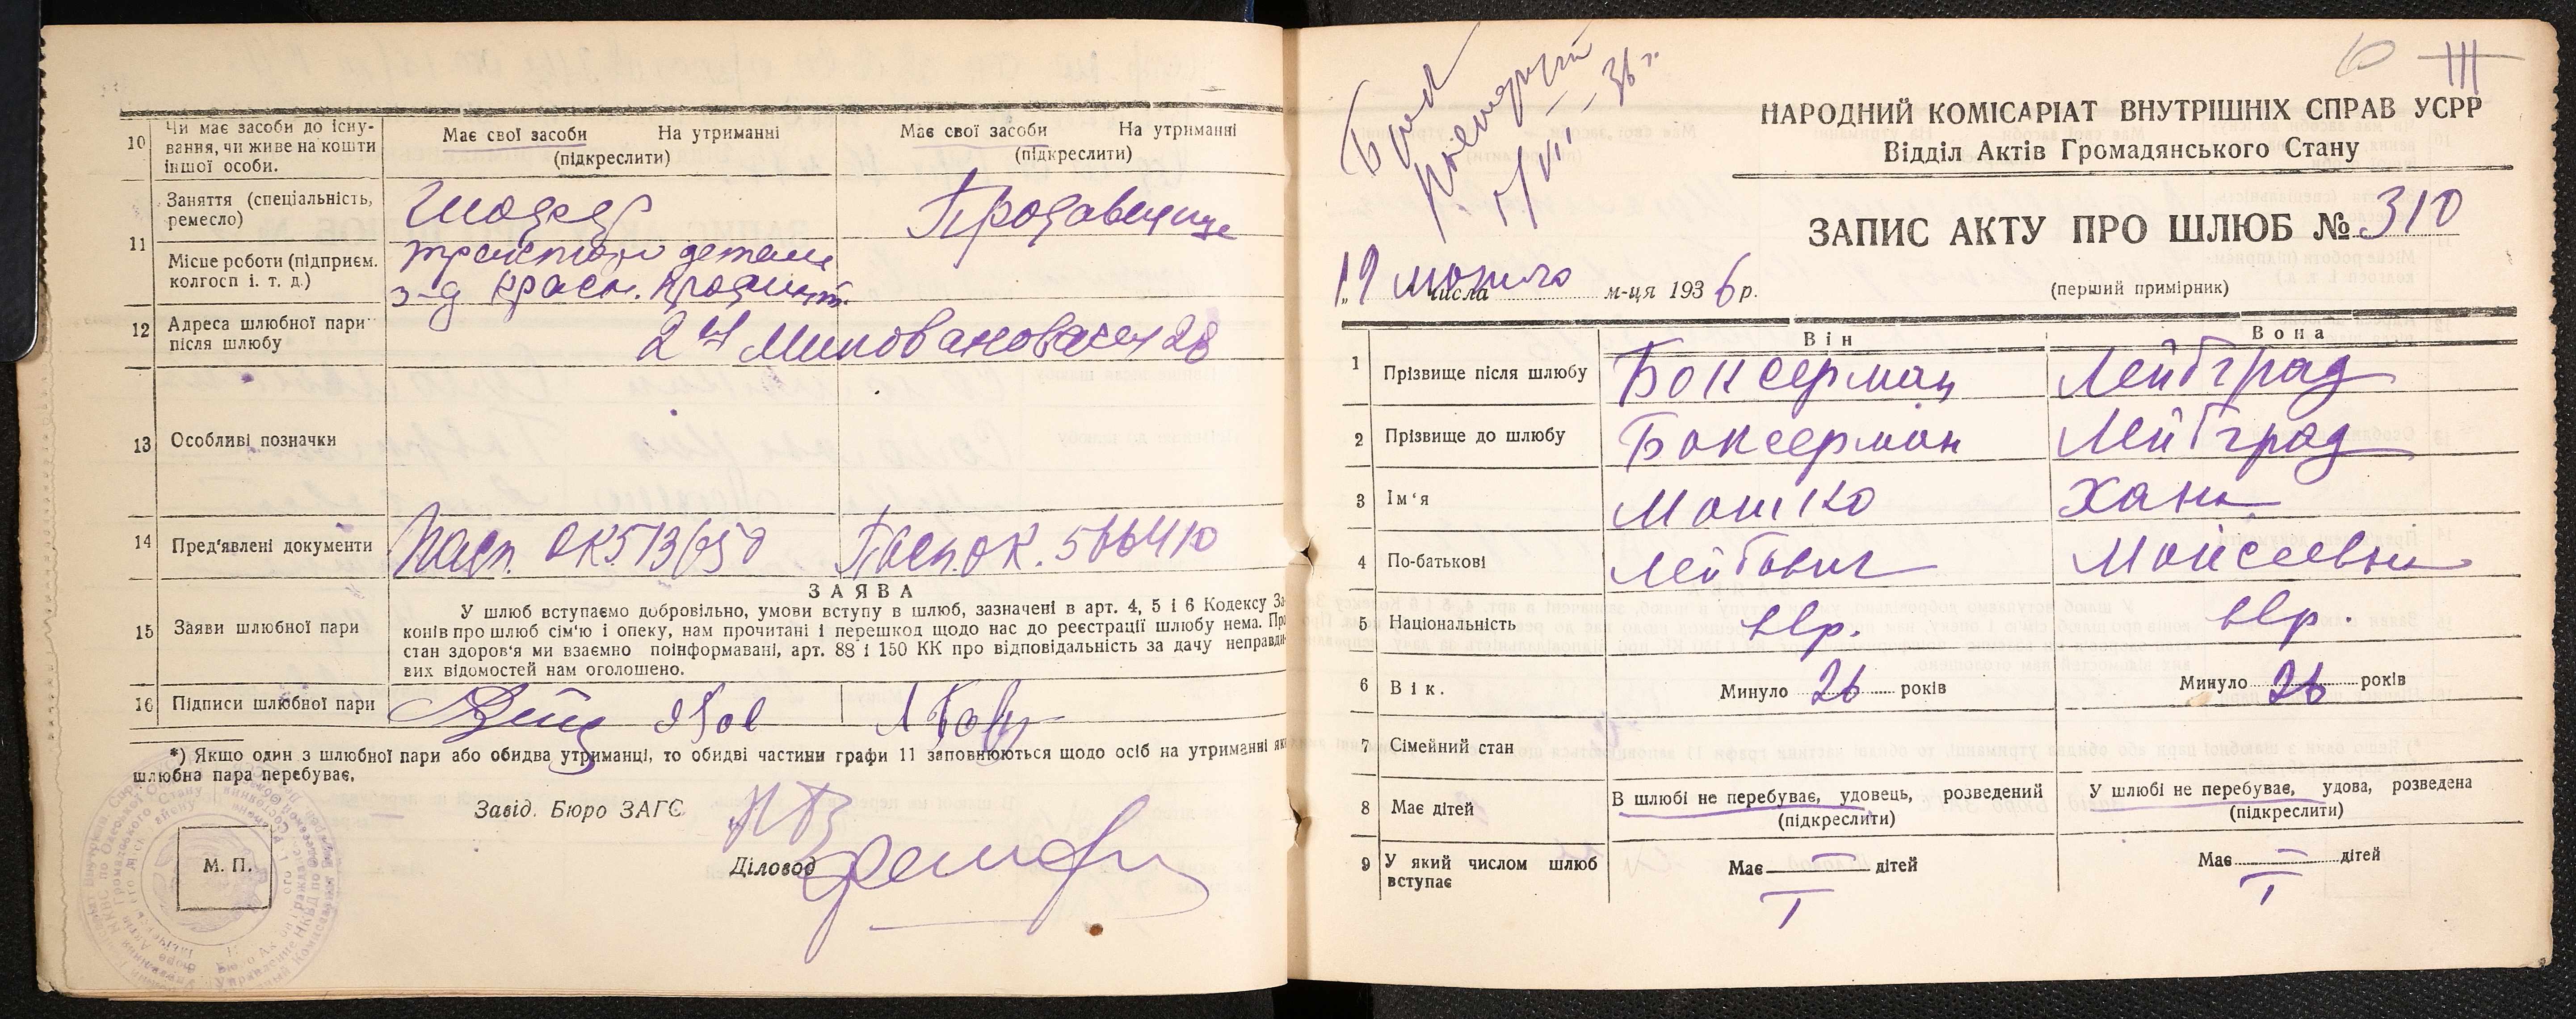 10 Чи має засоби до існу-
вання, чи живе на кошти
іншої особи.
Має свої засоби На утриманні
(підкреслити)
Має свої засоби На утриманні
(підкреслити)
11 Заняття (спеціальність,
ремесло)
Продавщице
Місце роботи (підприєм.
колгосп і. т. д.)
детали
з-д Красн.
12 Адреса шлюбної пари
після шлюбу
28
13 Особливі позначки
14 Пред'явлені документи
Пасп. ОК513650
Пасп. ОК. 566410
15 Заяви шлюбної пари
ЗАЯВА
У шлюб вступаємо добровільно, умови вступу в шлюб, зазначені в арт. 4, 5 і 6 Кодексу За-
конів про шлюб сім'ю і опеку, нам прочитані і перешкод щодо нас до реєстрації шлюбу нема. Про
стан здоров'я ми взаємно поінформавані, арт. 88 і 150 КК про відповідальність за дачу неправди-
вих відомостей нам оголошено.
16 Підписи шлюбної пари
*) Якщо один з шлюбної пари або обидва утриманці, то обидві частини графи 11 заповнюються щодо осіб на утриманні яких
шлюбна пара перебуває.
Завід. Бюро ЗАГС
Діловод
М. П.
10 III
НАРОДНИЙ КОМІСАРІАТ ВНУТРІШНІХ СПРАВ УСРР
Відділ Актів Громадянського Стану
ЗАПИС АКТУ ПРО ШЛЮБ № 310
(перший примірник)
„19 числа м-ця 1936 р.
Він Вона
1 Прізвище після шлюбу Боксерман Лейбград
2 Прізвище до шлюбу Боксерман Лейбград
3 Ім'я Мошко Хана
4 По-батькові Лейбович Мойсеевна
5 Національність евр. евр.
6 Вік. Минуло 26 років Минуло 26 років
7 Сімейний стан
8 Має дітей
В шлюбі не перебуває, удовець, розведений
(підкреслити)
У шлюбі не перебуває, удова, розведена
(підкреслити)
9 У який числом шлюб
вступає
Має — дітей
I
Має — дітей
I